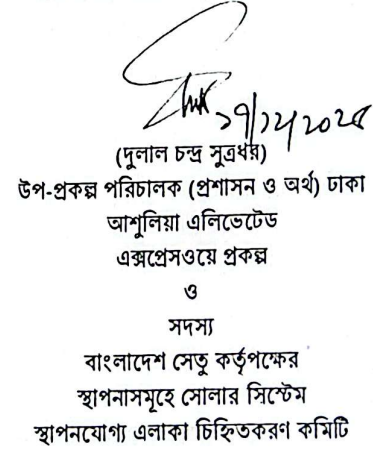 ১৭/১২/২০২৫
(দুলাল চন্দ্র সুত্রধর)
উপ-প্রকল্প পরিচালক (প্রশাসন ও অর্থ) ঢাকা
আশুলিয়া এলিভেটেড
এক্সপ্রেসওয়ে প্রকল্প
ও
সদস্য
বাংলাদেশ সেতু কর্তৃপক্ষের
স্থাপনাসমূহে সোলার সিস্টেম
স্থাপনযোগ্য এলাকা চিহ্নিতকরণ কমিটি